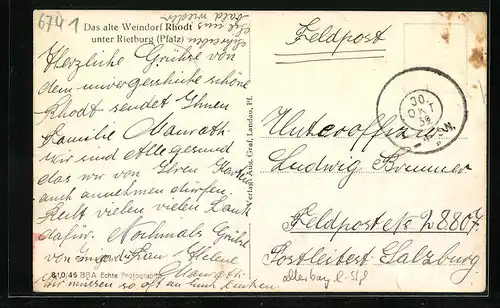 6741
Das alte Weindorf Rhodt
unter Rietburg (Pfalz)
Herzliche Grüße von
dem unvergeßliche schöne
Rhodt sendet Ihnen
Familie Manrath.
Wir sind Alle gesund
das wir von Ihren Herrn
auch annehmen dürfen.
Habt vielen vielen Dank
dafür. Nochmals Grüße
von Frau Helene
Manrath.
wir müssen so oft an euch denken
schreiben
uns wieder
bald
Verlag Aug. Graf, Landau, Pf.
810/46 BRA Echte Photographie
Feldpost
30.
Unteroffizier
Ludwig Brunner
Feldpost № 28807
Postleitort Salzburg